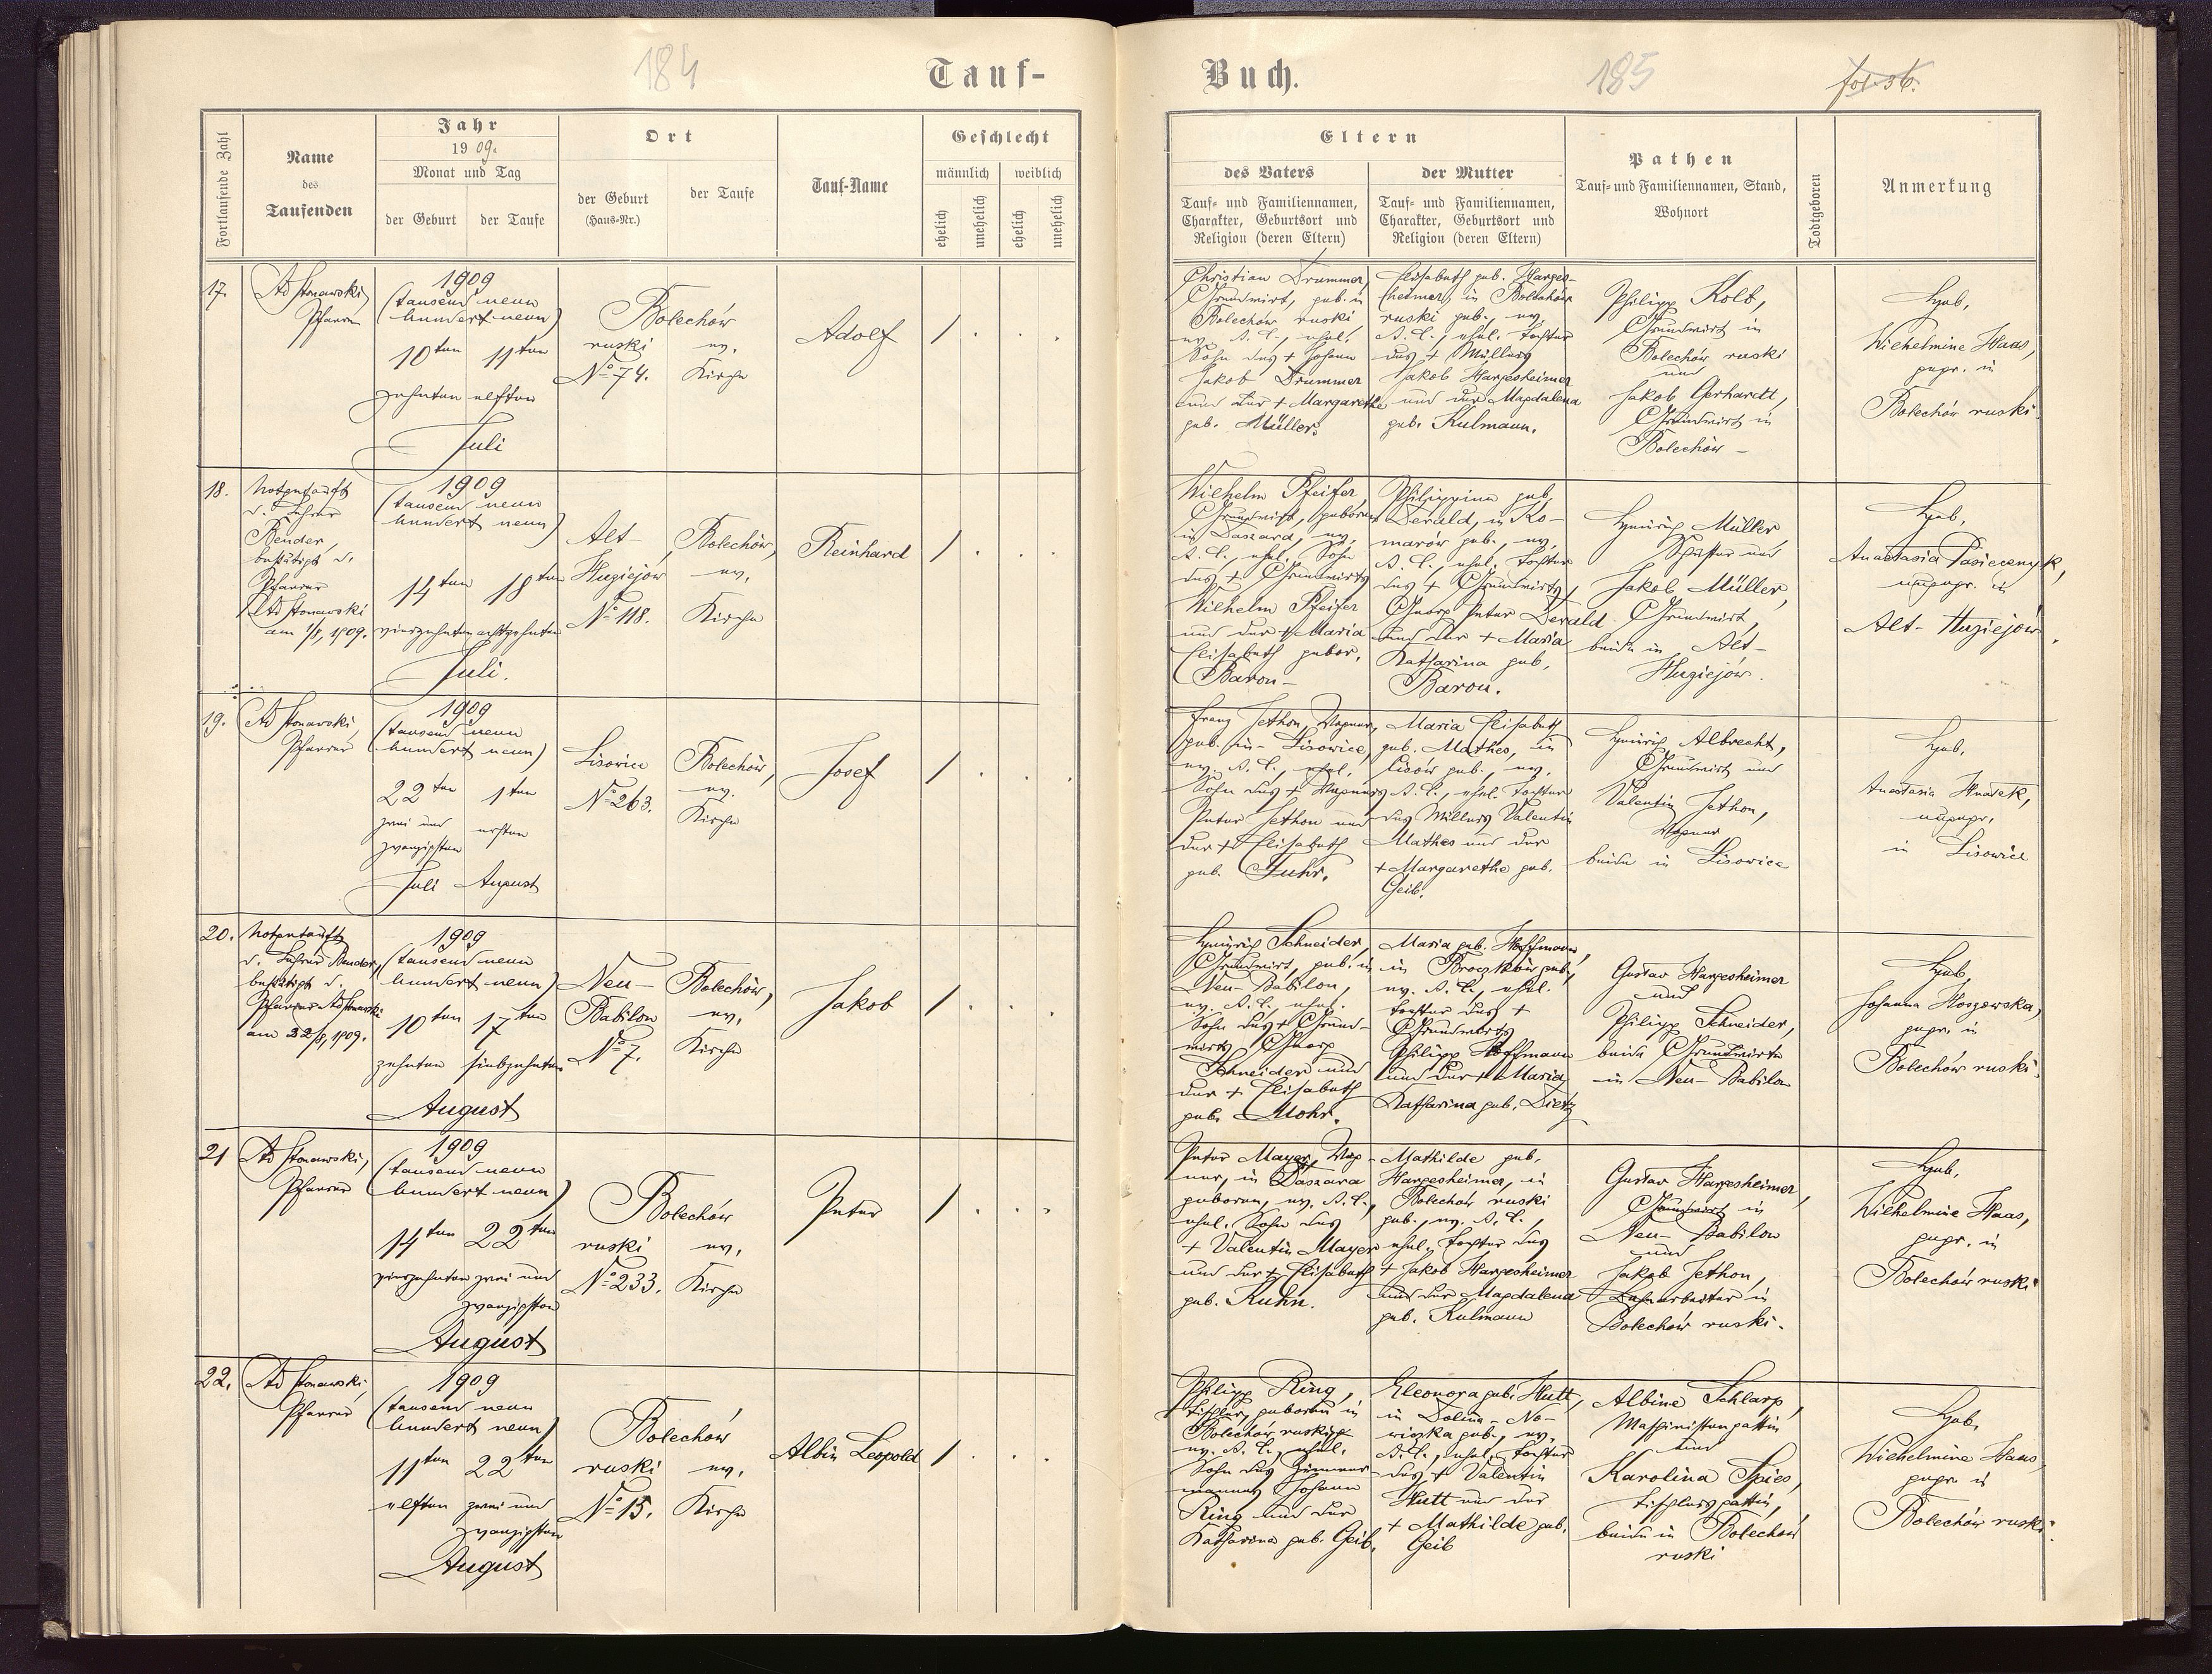 184
Tauf-
Fortlaufende Zahl
Name
des
Taufenden
Jahr
1909.
Monat und Tag
der Geburt
der Taufe
Ort
der Geburt
(Haus-Nr.)
der Taufe
Tauf-Name
Geschlecht
männlich
weiblich
ehelich
unehelich
ehelich
unehelich
Buch.
185
fol. 36.
Eltern
des Vaters
Tauf- und Familiennamen,
Charakter, Geburtsort und
Religion (deren Eltern)
der Mutter
Tauf- und Familiennamen,
Charakter, Geburtsort und
Religion (deren Eltern)
Pathen
Tauf- und Familiennamen, Stand,
Wohnort
Todtgeboren
Anmerkung
17.
Pfarrer
1909
(tausend neun
hundert neun)
10ten 11ten
zehnten elften
Juli
Bolechów
ruski ev.
No 74. Kirche
Adolf
/ . . .
Christian Drummer,
Grundwirt, geb. in
Bolechów ruski,
ev. A. C., ehel.
Sohn des + Johann
Jakob Drummer
und der + Margarethe
geb. Müller.
Elisabeth geb. Harges-
heimer, in Bolechów
ruski geb., ev.
A. C., ehel. Tochter
des + Müllers
Jakob Hargesheimer
und der Magdalena
geb. Kulmann.
Philipp Kolb,
Grundwirt in
Bolechów ruski
und
Jakob Gerhardt,
Grundwirt in
Bolechów
Heb.
Wilhelmine Haas,
gepr. in
Bolechów ruski.
18.
Notgetauft
d. Lehrer
Bender,
bestätigt d.
Pfarrer
am 1/8, 1909.
1909
(tausend neun
hundert neun)
14ten 18ten
vierzehnten achtzehnten
Juli.
Alt-
Hugiejów
No 118.
Bolechów,
ev.
Kirche
Reinhard
/ . . .
Wilhelm Pfeifer,
Grundwirt, geboren
in Daszawa, ev.
A. C., ehel. Sohn
des + Grundwirts
Wilhelm Pfeifer
und der + Maria
Elisabeth gebor.
Baron
Philippine geb.
Derald, in Ko-
marów geb., ev.
A. C., ehel. Tochter
des + Grundwirts
Georg Peter Derald
und der + Maria
Katharina geb.
Baron.
Heinrich Müller,
und
Jakob Müller,
Grundwirt,
beide in Alt-
Hugiejów.
Heb.
Anastasia Pasiecznyk,
ungepr. in
Alt-Hugiejów.
19.
Pfarrer
1909
(tausend neun
hundert neun)
22ten 1ten
zwei und ersten
zwanzigsten
Juli August
Lisowice
No 263.
Bolechów,
ev.
Kirche
Josef
/ . . .
Franz Jethon, Wagner,
geb. in Lisowice,
ev. A. C., ehel.
Sohn des + Wagners
Peter Jethon und
der + Elisabeth
geb. Fuhr.
Maria Elisabeth
geb. Mathes, in
Lisów geb., ev.
A. C., ehel. Tochter
des Müllers Valentin
Mathes und der
+ Margarethe geb.
Geib.
Heinrich Albrecht,
Grundwirt und
Valentin Jethon,
Wagner,
beide in Lisowice
Heb.
Anastasia Hnatek,
ungepr.
in Lisowice
20.
Notgetauft
d. Lehrer Bender,
bestätigt d.
Pfarrer
am 22/8, 1909.
1909
(tausend neun
hundert neun)
10ten 17ten
zehnten siebzehnten
August
Neu-
Babilon
No 7.
Bolechów,
ev.
Kirche
Jakob
/ . . .
Heinrich Schneider,
Grundwirt, geb. in
Neu-Babilon,
ev. A. C., ehel.
Sohn des + Grund-
wirts Georg
Schneider und
der + Elisabeth
geb. Mohr.
Maria geb. Hoffmann,
in Broczków geb.,
ev. A. C., ehel.
Tochter des +
Grundwirts
Philipp Hoffmann
und der + Maria
Katharina geb. Dietz
Gustav Hargesheimer
und
Philipp Schneider,
beide Grundwirte
in Neu-Babilon
Heb.
Johanna Hoszowska,
gepr. in
Bolechów ruski.
21
Pfarrer
1909
(tausend neun
hundert neun)
14ten 22ten
vierzehnten zwei und
zwanzigsten
August
Bolechów
ruski ev.
No 233. Kirche
Peter
/ . . .
Peter Mayer, Wag-
ner, in Daszawa
geboren, ev. A. C.,
ehel. Sohn des
+ Valentin Mayer
und der + Elisabeth
geb. Kuhn.
Mathilde geb.
Hargesheimer, in
Bolechów ruski
geb., ev. A. C.,
ehel. Tochter des
+ Jakob Hargesheimer
und der Magdalena
geb. Kulmann
Gustav Hargesheimer,
Grundwirt in
Neu-Babilon
und
Jakob Jethon,
in
Bolechów ruski.
Heb.
Wilhelmine Haas,
gepr. in
Bolechów ruski
22.
Pfarrer
1909
(tausend neun
hundert neun)
11ten 22ten
elften zwei und
zwanzigsten
August
Bolechów
ruski ev.
No 15. Kirche
Albin Leopold
/ . . .
Philipp Ring,
Tischler, geboren in
Bolechów ruski,
ev. A. C., ehel.
Sohn des Zimmer-
mannes Johann
Ring und der
Katharina geb. Geib.
Eleonora geb. Hutt,
in Dolina-No-
wiczka geb., ev.
A. C., ehel. Tochter
des + Valentin
Hutt und der
+ Mathilde geb.
Geib
Albine Schlarp,
Maschinistengattin
und
Karolina Spies,
Tischlersgattin,
beide in Bolechów
ruski
Heb.
Wilhelmine Haas,
gepr. in
Bolechów ruski.